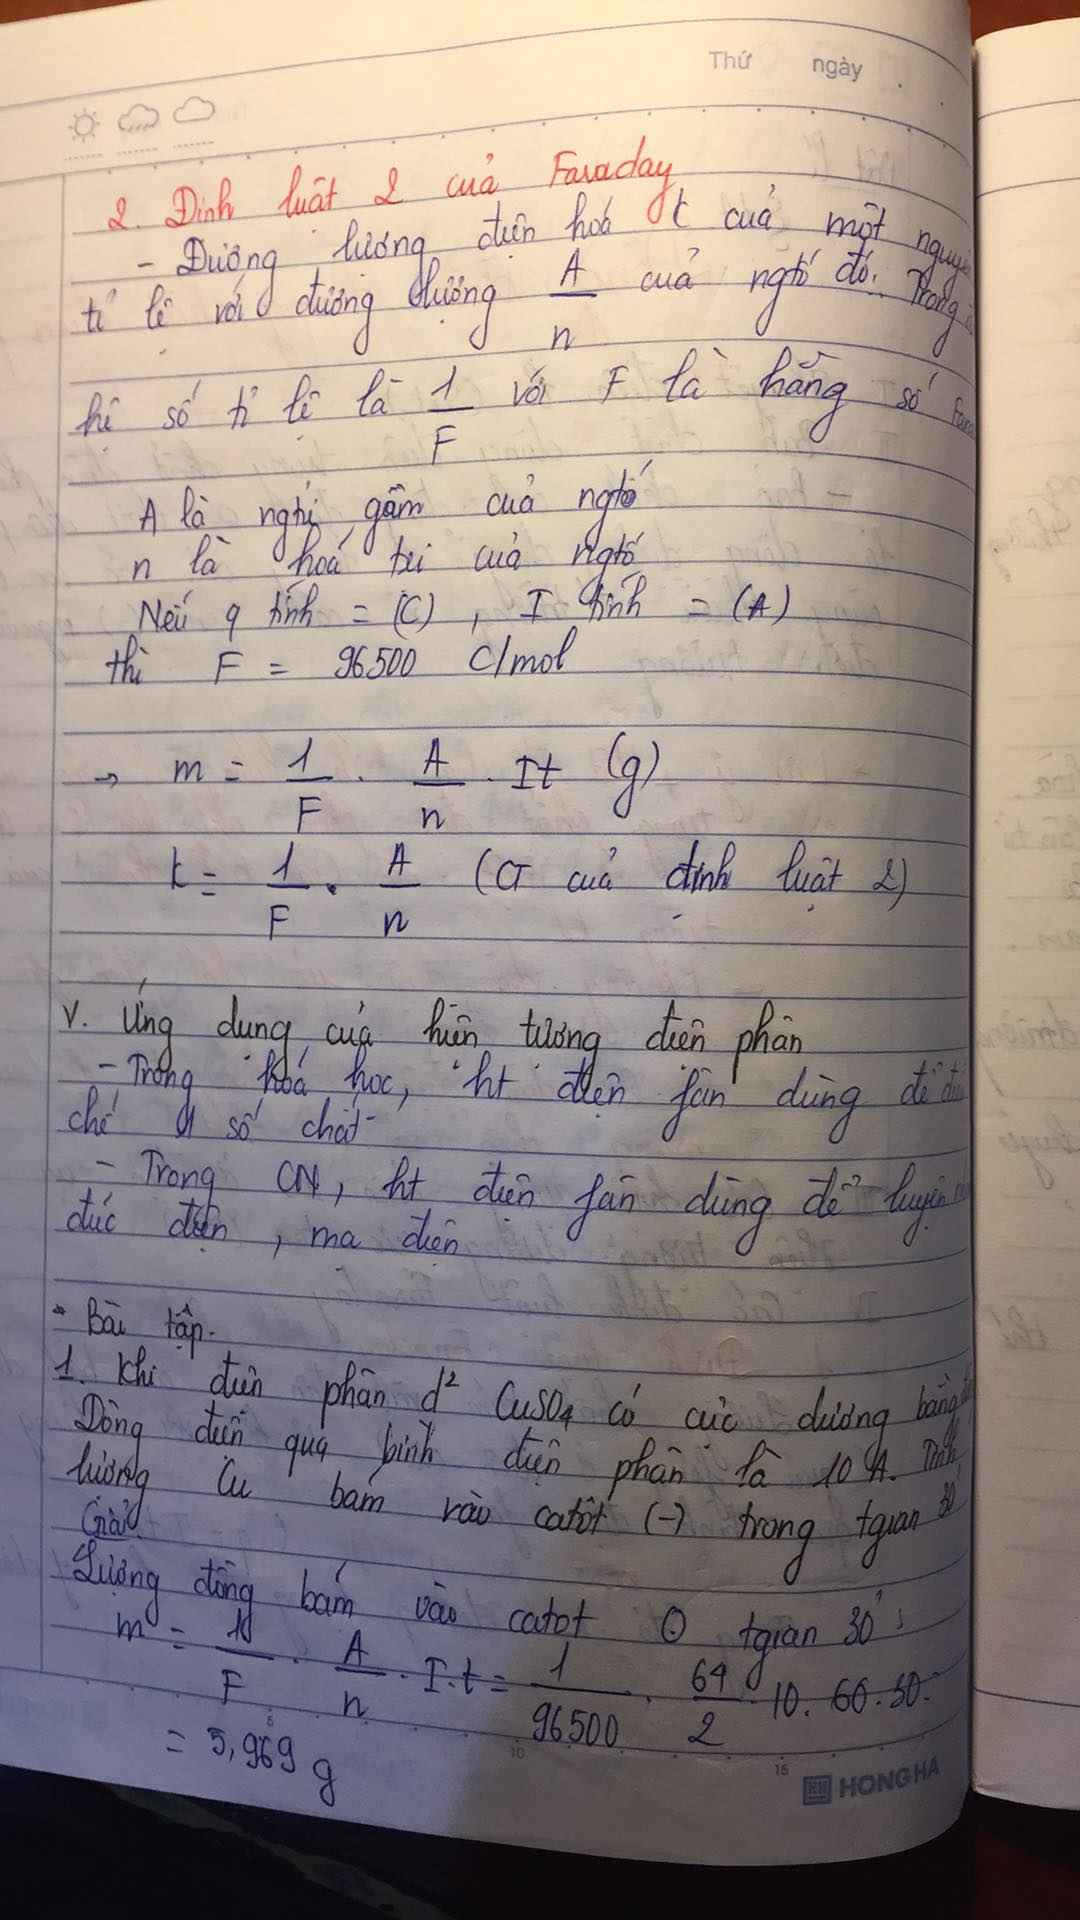 Thứ ngày
2. Định luật 2 của Faraday
- Đương lượng điện hoá k của một nguyê
tỉ lệ với đương lượng A/n của ngtố đó. Trong
hệ số tỉ lệ là 1/F với F là hằng số Fara
A là ngtử gam của ngtố
n là hoá trị của ngtố
Nếu q tính = (C), I tính = (A)
thì F = 96500 C/mol
→ m = 1/F . A/n . It (g)
k = 1/F . A/n (CT của định luật 2)
V. Ứng dụng của hiện tượng điện phân
- Trong hoá học, ht điện fân dùng để điề
chế 1 số chất
- Trong CN, ht điện fân dùng để luyện
đúc điện, mạ điện
* Bài tập.
1. Khi điện phân d² CuSO4 có cực dương bằng
Dòng điện qua bình điện phân là 10 A. Tính
lượng Cu bám vào catôt (-) trong tgian 30'
Giải
Lượng đồng bám vào catot ⊖ tgian 30':
m = 1/F . A/n . I.t = 1/96500 . 64/2 . 10. 60. 30.
= 5,969 g
5 10 15
HH HONG HA